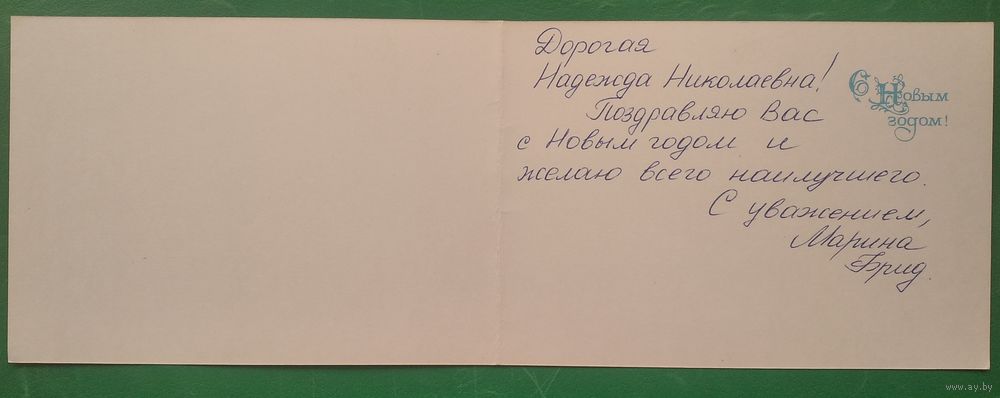 Дорогая
Надежда Николаевна!
Поздравляю Вас
с Новым годом и
желаю всего наилучшего.
С уважением,
Марина
Брид.
С Новым
годом!
www.ay.by